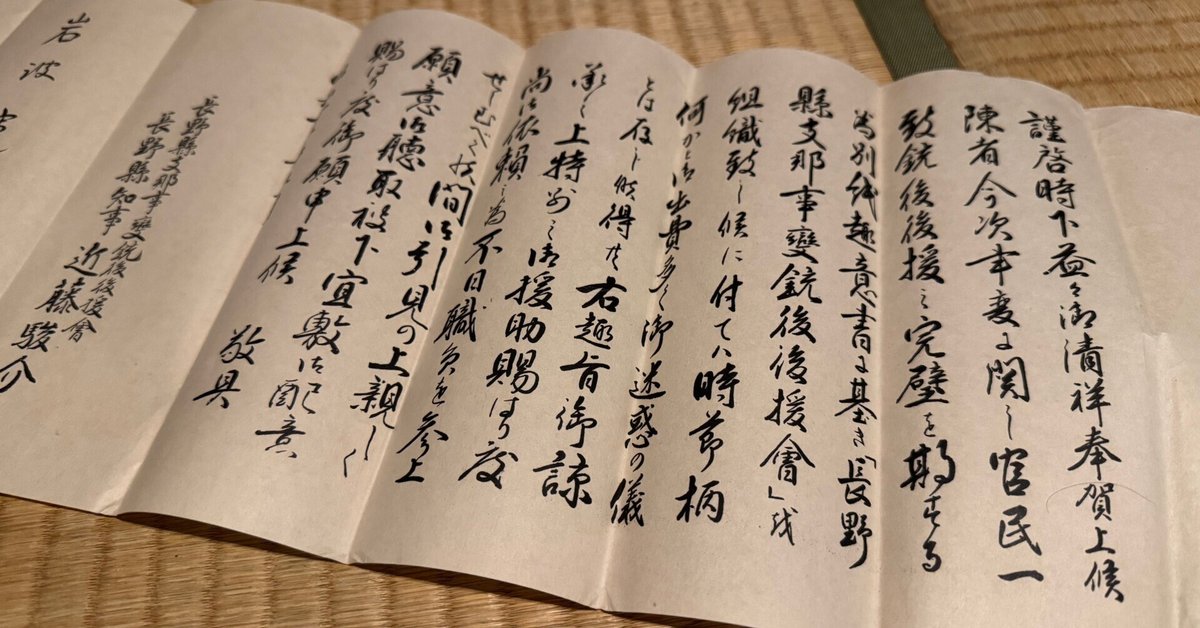 謹啓時下益々御清祥奉賀上候
陳者今次事変に関し官民一
致銃後後援之完璧を期する
為別紙趣意書に基き「長野
縣支那事變銃後後援會」を
組織致し候に付ては時節柄
何かと御出費多く御迷惑の儀
とは存じ候得共右趣旨御諒
承之上特別之御援助賜はり度
尚御依頼之為不日職員を参上
間御引見の上親しく
願意御聴取被下宜敷御配意
賜はり度御願申上候
敬具
長野縣支那事變銃後後援會
長野縣知事 近藤駿介
岩波